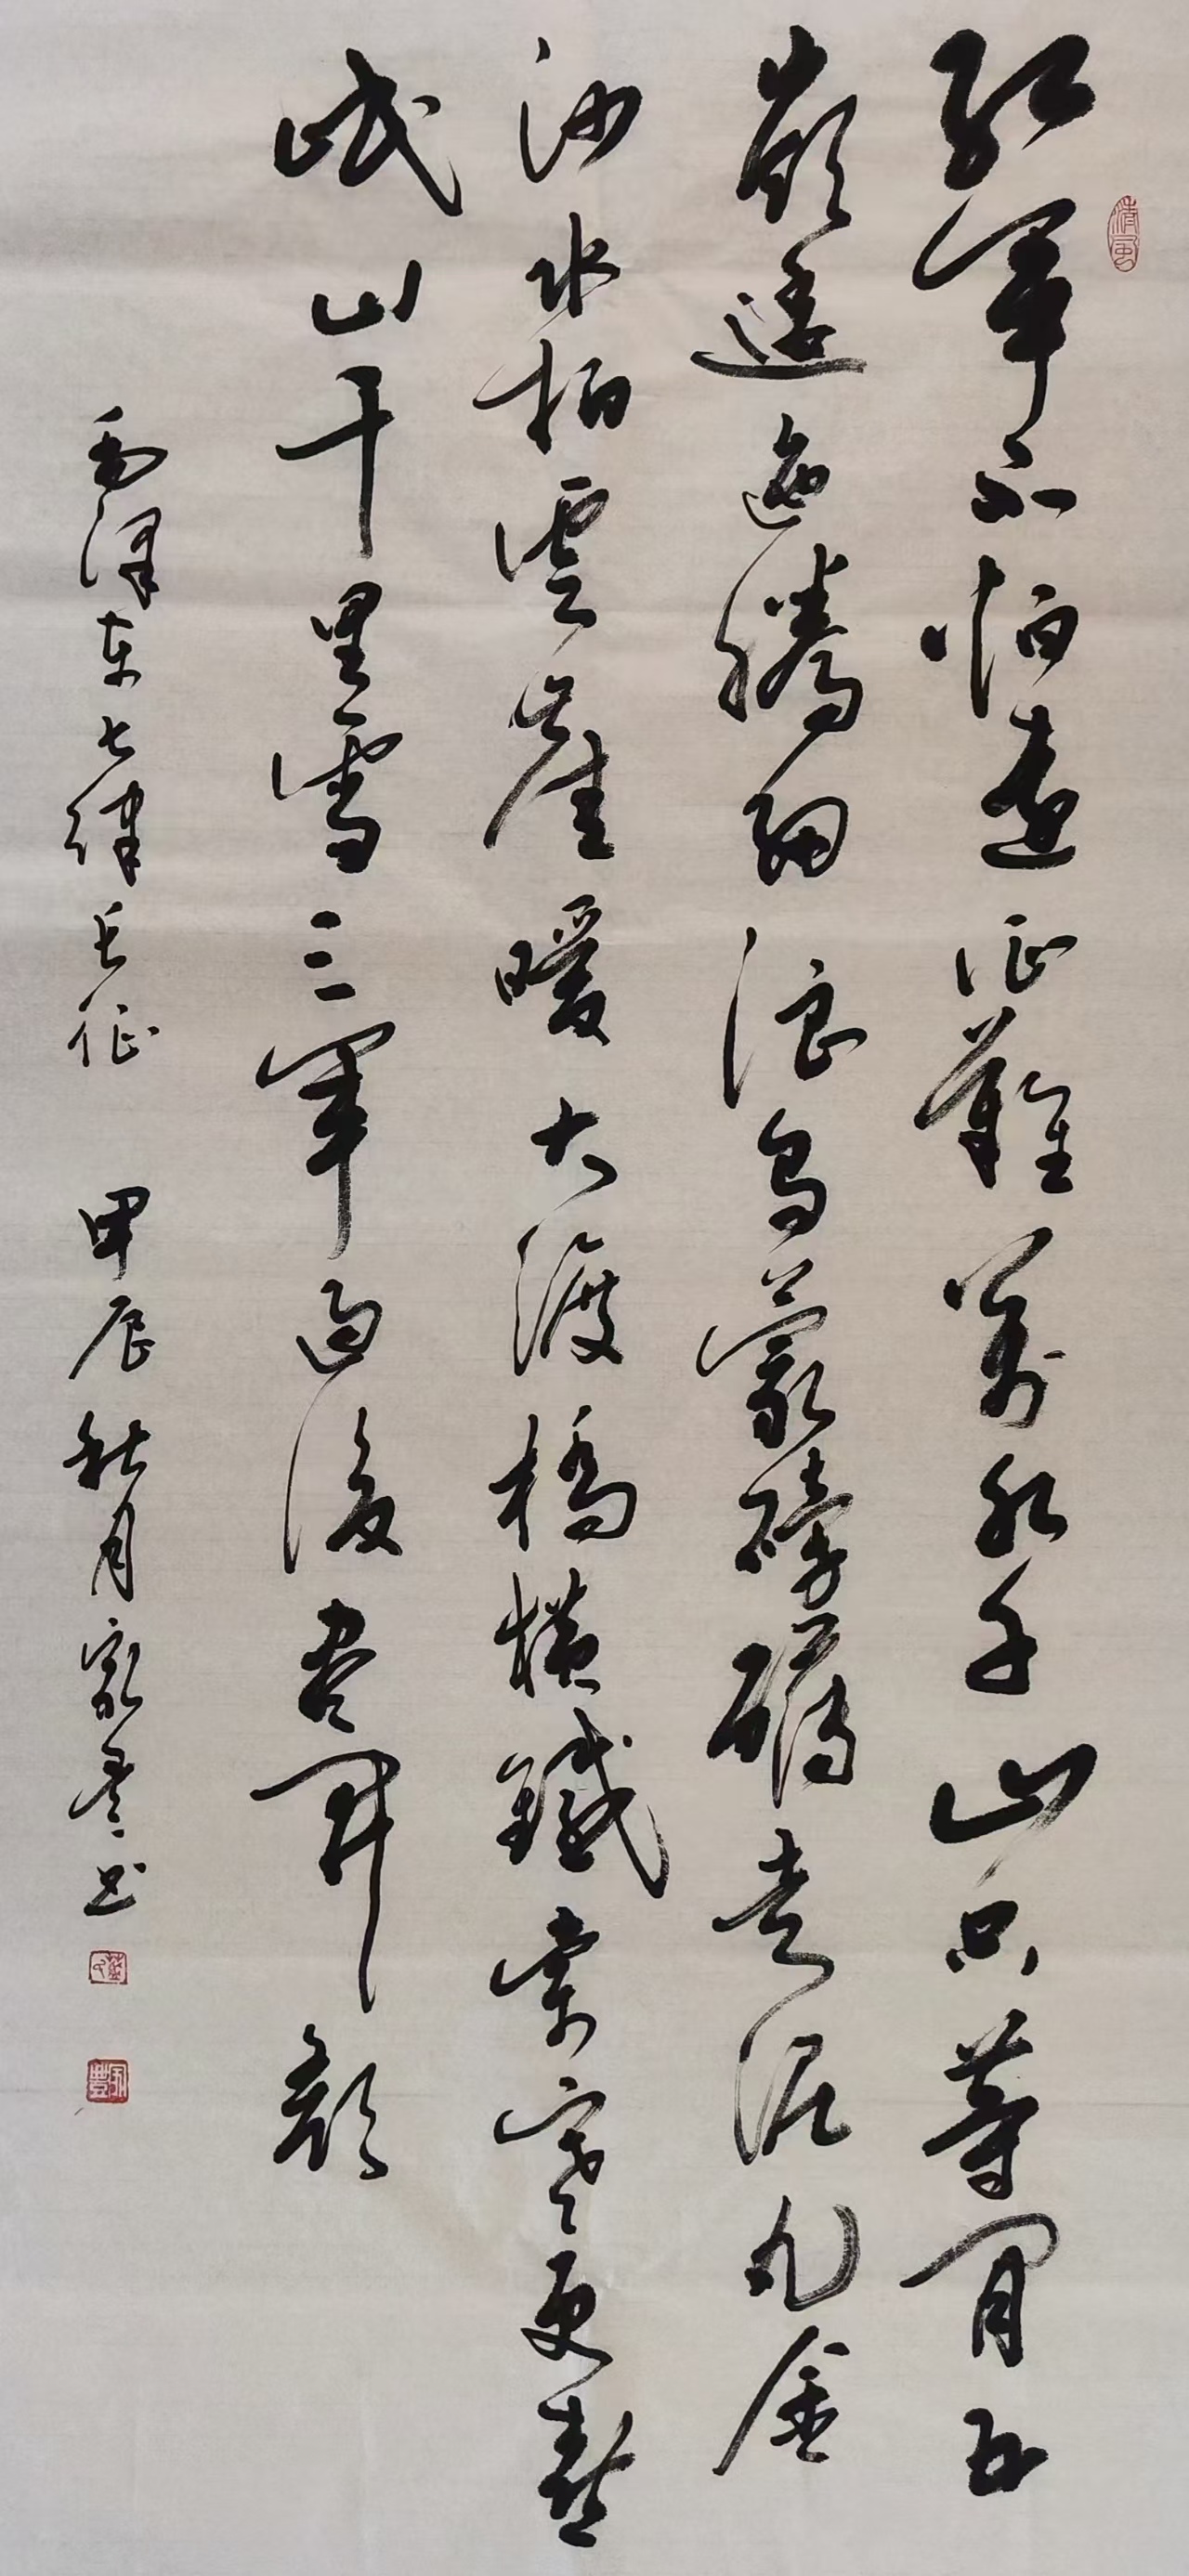 红军不怕远征难万水千山只等闲五
岭逶迤腾细浪乌蒙磅礴走泥丸金
沙水拍云崖暖大渡桥横铁索寒更喜
岷山千里雪三军过后尽开颜
毛泽东七律长征 甲辰秋月家丰书
清风
家豐